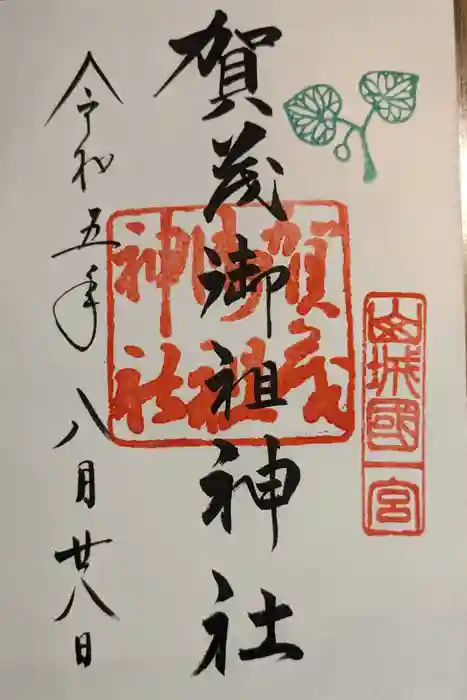 山城國一宮
賀茂御祖神社
賀茂
御祖
神社
令和五年 八月廿八日